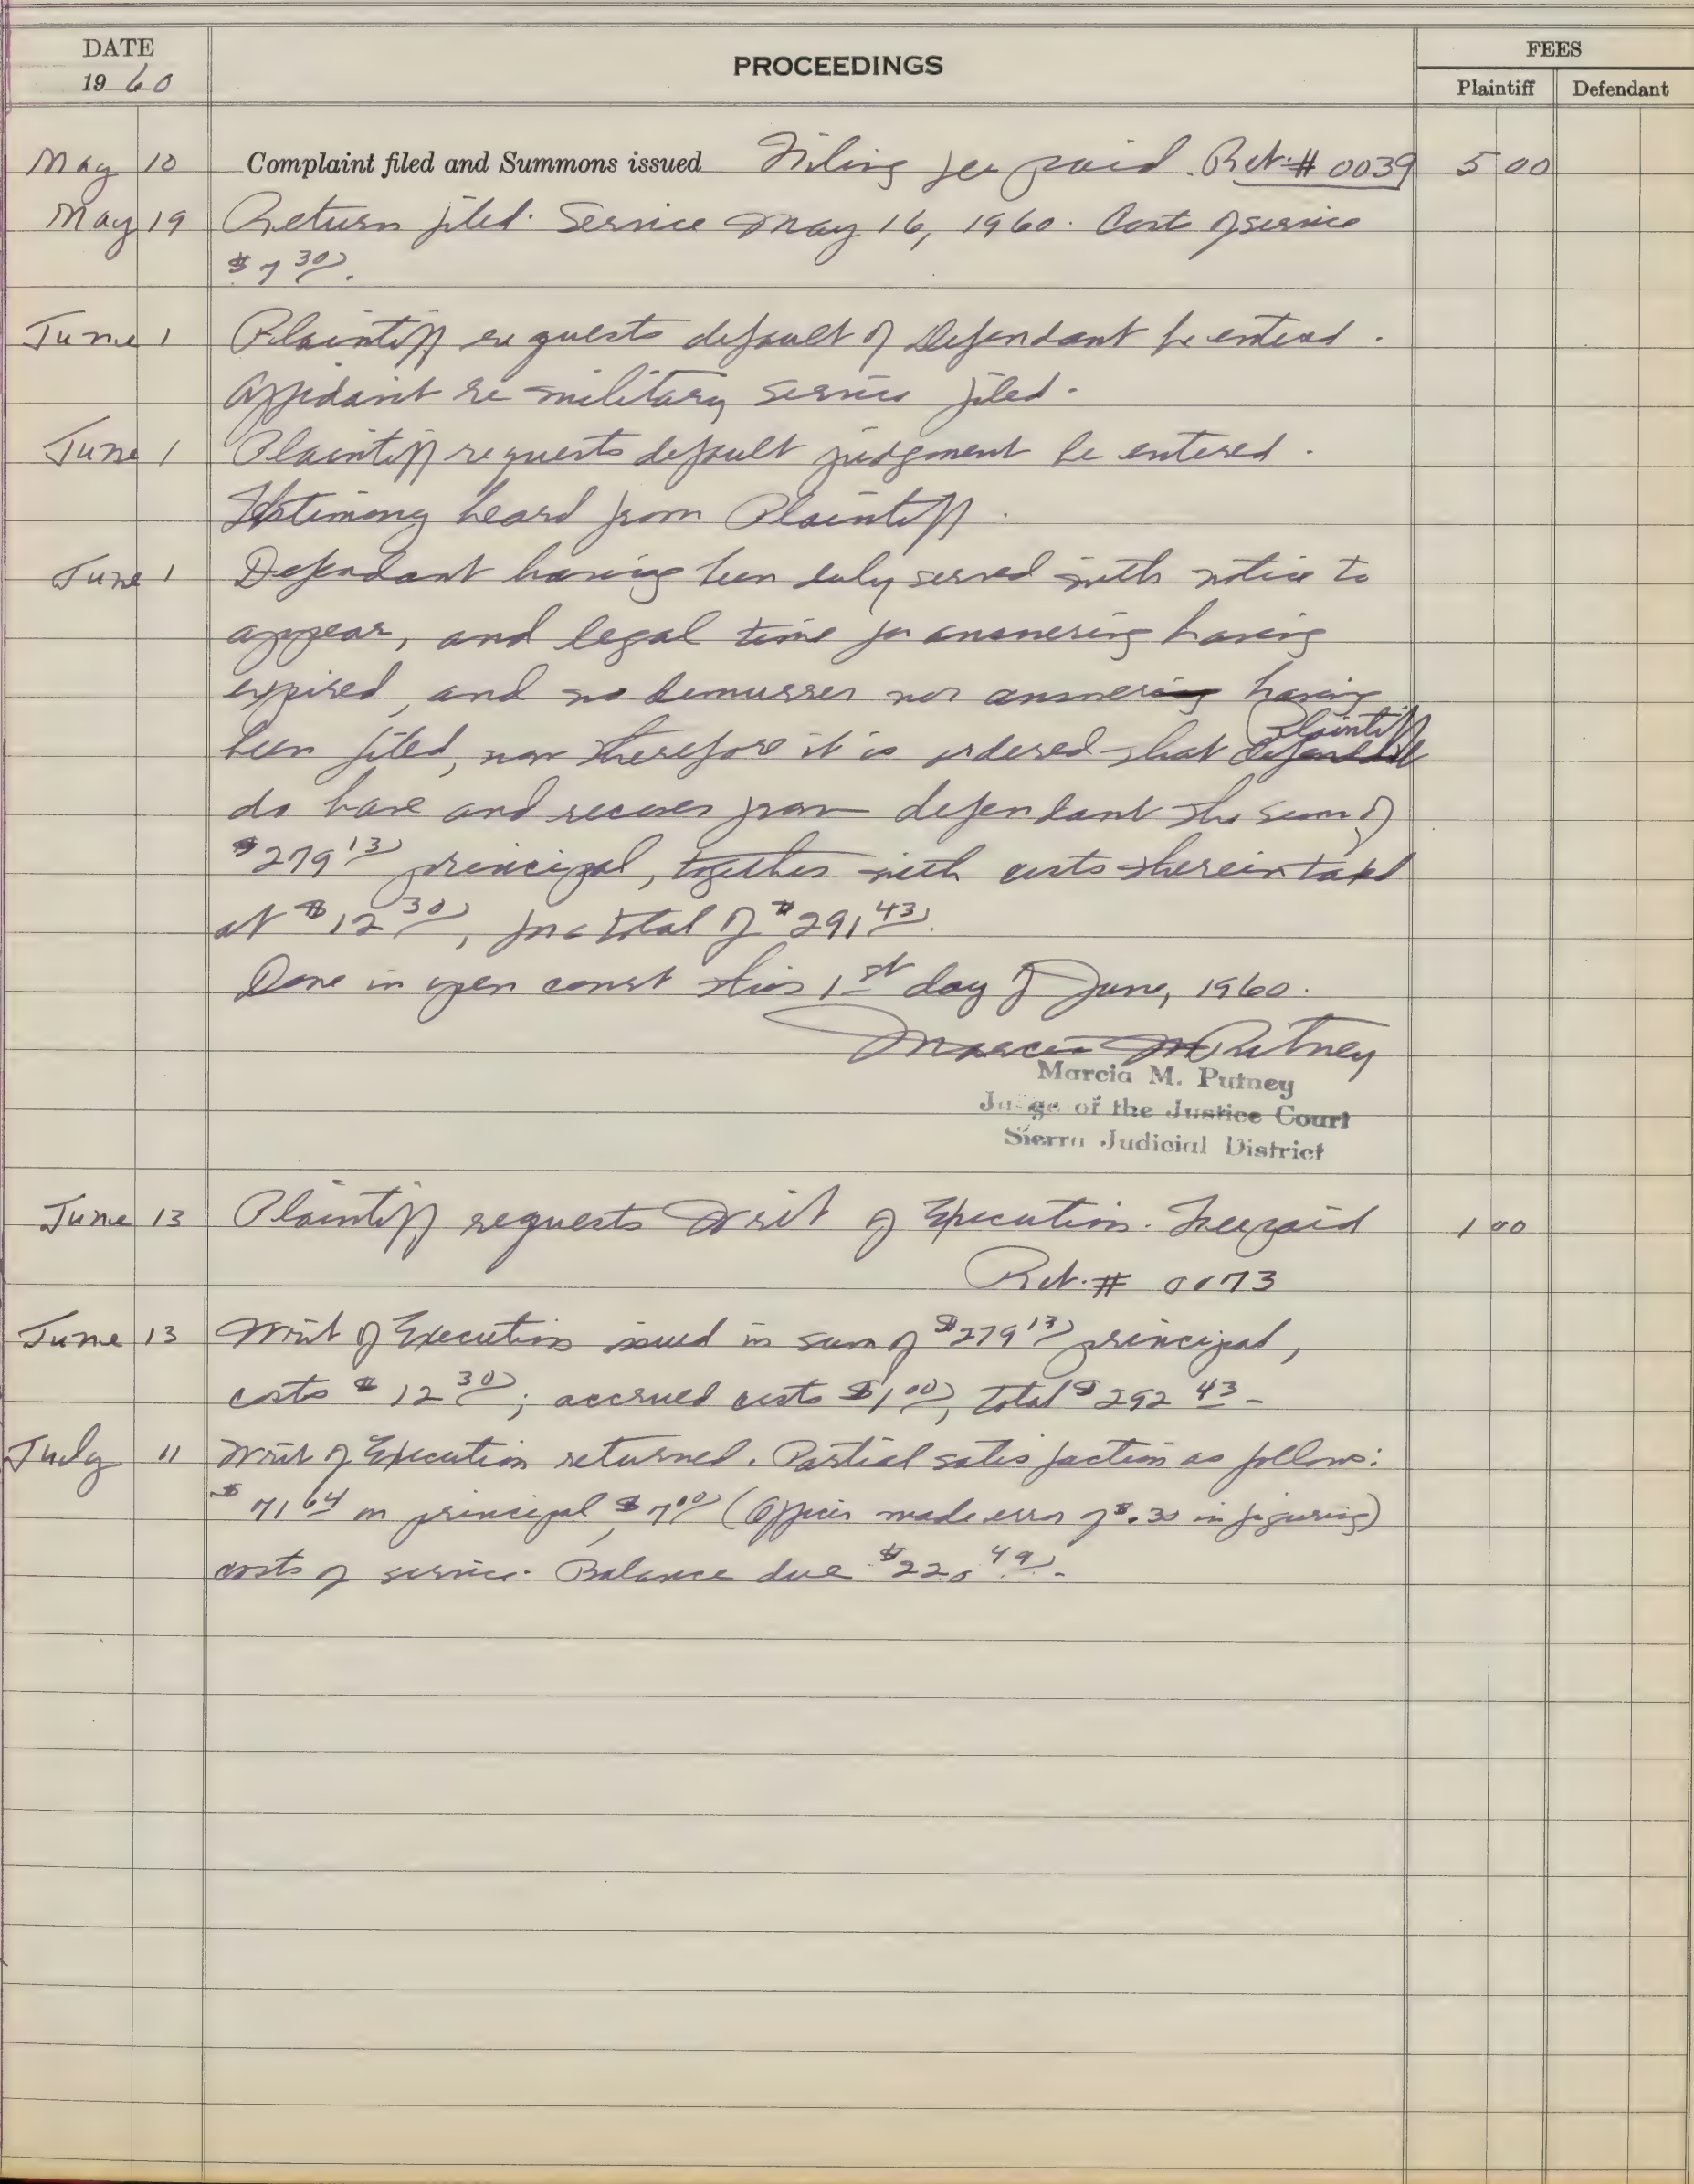 DATE PROCEEDINGS FEES
1960 Plaintiff Defendant
May 10 Complaint filed and Summons issued Filing fee paid Rct. # 0039 5 00
May 19 Return filed. Service May 16, 1960. Cost of service
$7 30.
June 1 Plaintiff requests default of Defendant be entered.
Affidavit re military service filed.
June 1 Plaintiff requests default judgment be entered.
Testimony heard from Plaintiff.
June 1 Defendant having been duly served with notice to
appear, and legal time for answering having
expired, and no demurrer nor answering having
Plaintiff
been filed, now therefore it is ordered that defendant
do have and recover from defendant the sum of
$279 13 principal, together with costs therein taxed
at $12 30, for a total of $291 43.
Done in open court this 1st day of June, 1960.
Marcia M Putney
Marcia M. Putney
Judge of the Justice Court
Sierra Judicial District
June 13 Plaintiff requests Writ of Execution. Fee paid 1 00
Rct. # 0073
June 13 Writ of Execution issued in sum of $279 13 principal,
costs $12 30; accrued costs $1 00, total $292 43 -
July 11 Writ of Execution returned. Partial satisfaction as follows:
$71 64 on principal, $7 00 (Officer made error of $.30 in figuring)
costs of service. Balance due $220 49.